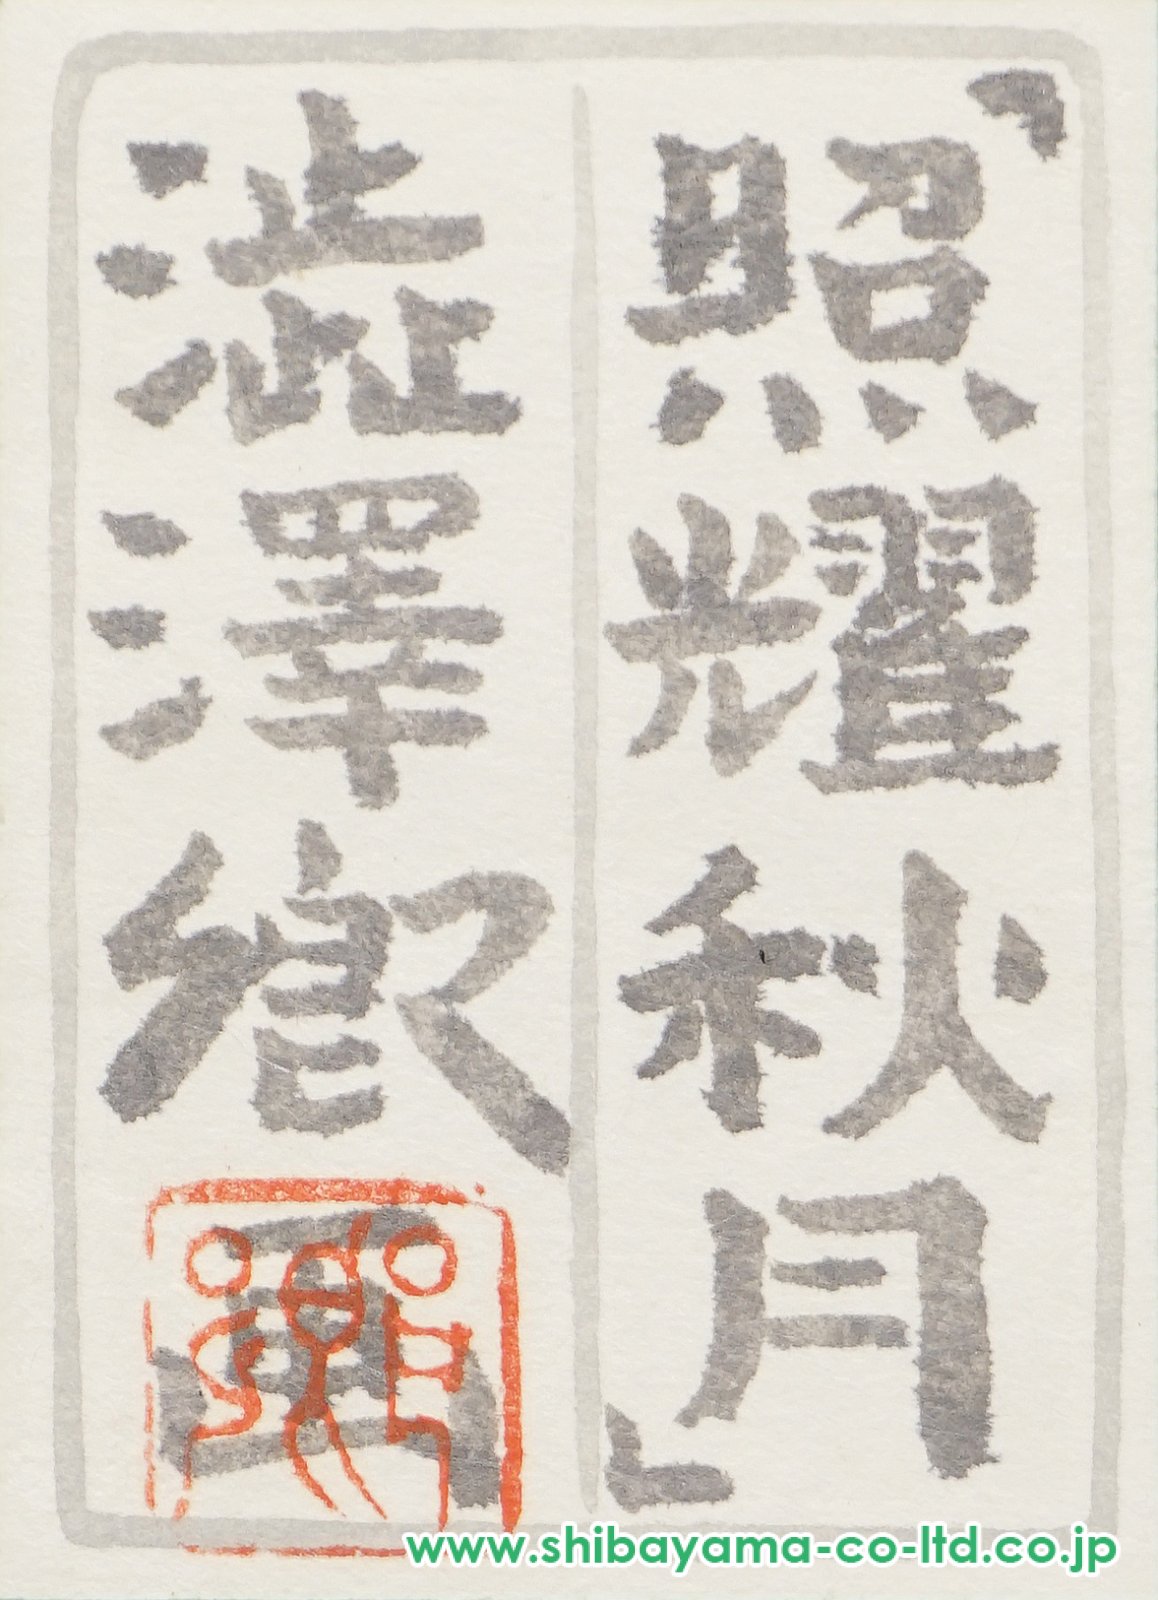 「照耀秋月」
澁澤卿画
www.shibayama-co-ltd.co.jp